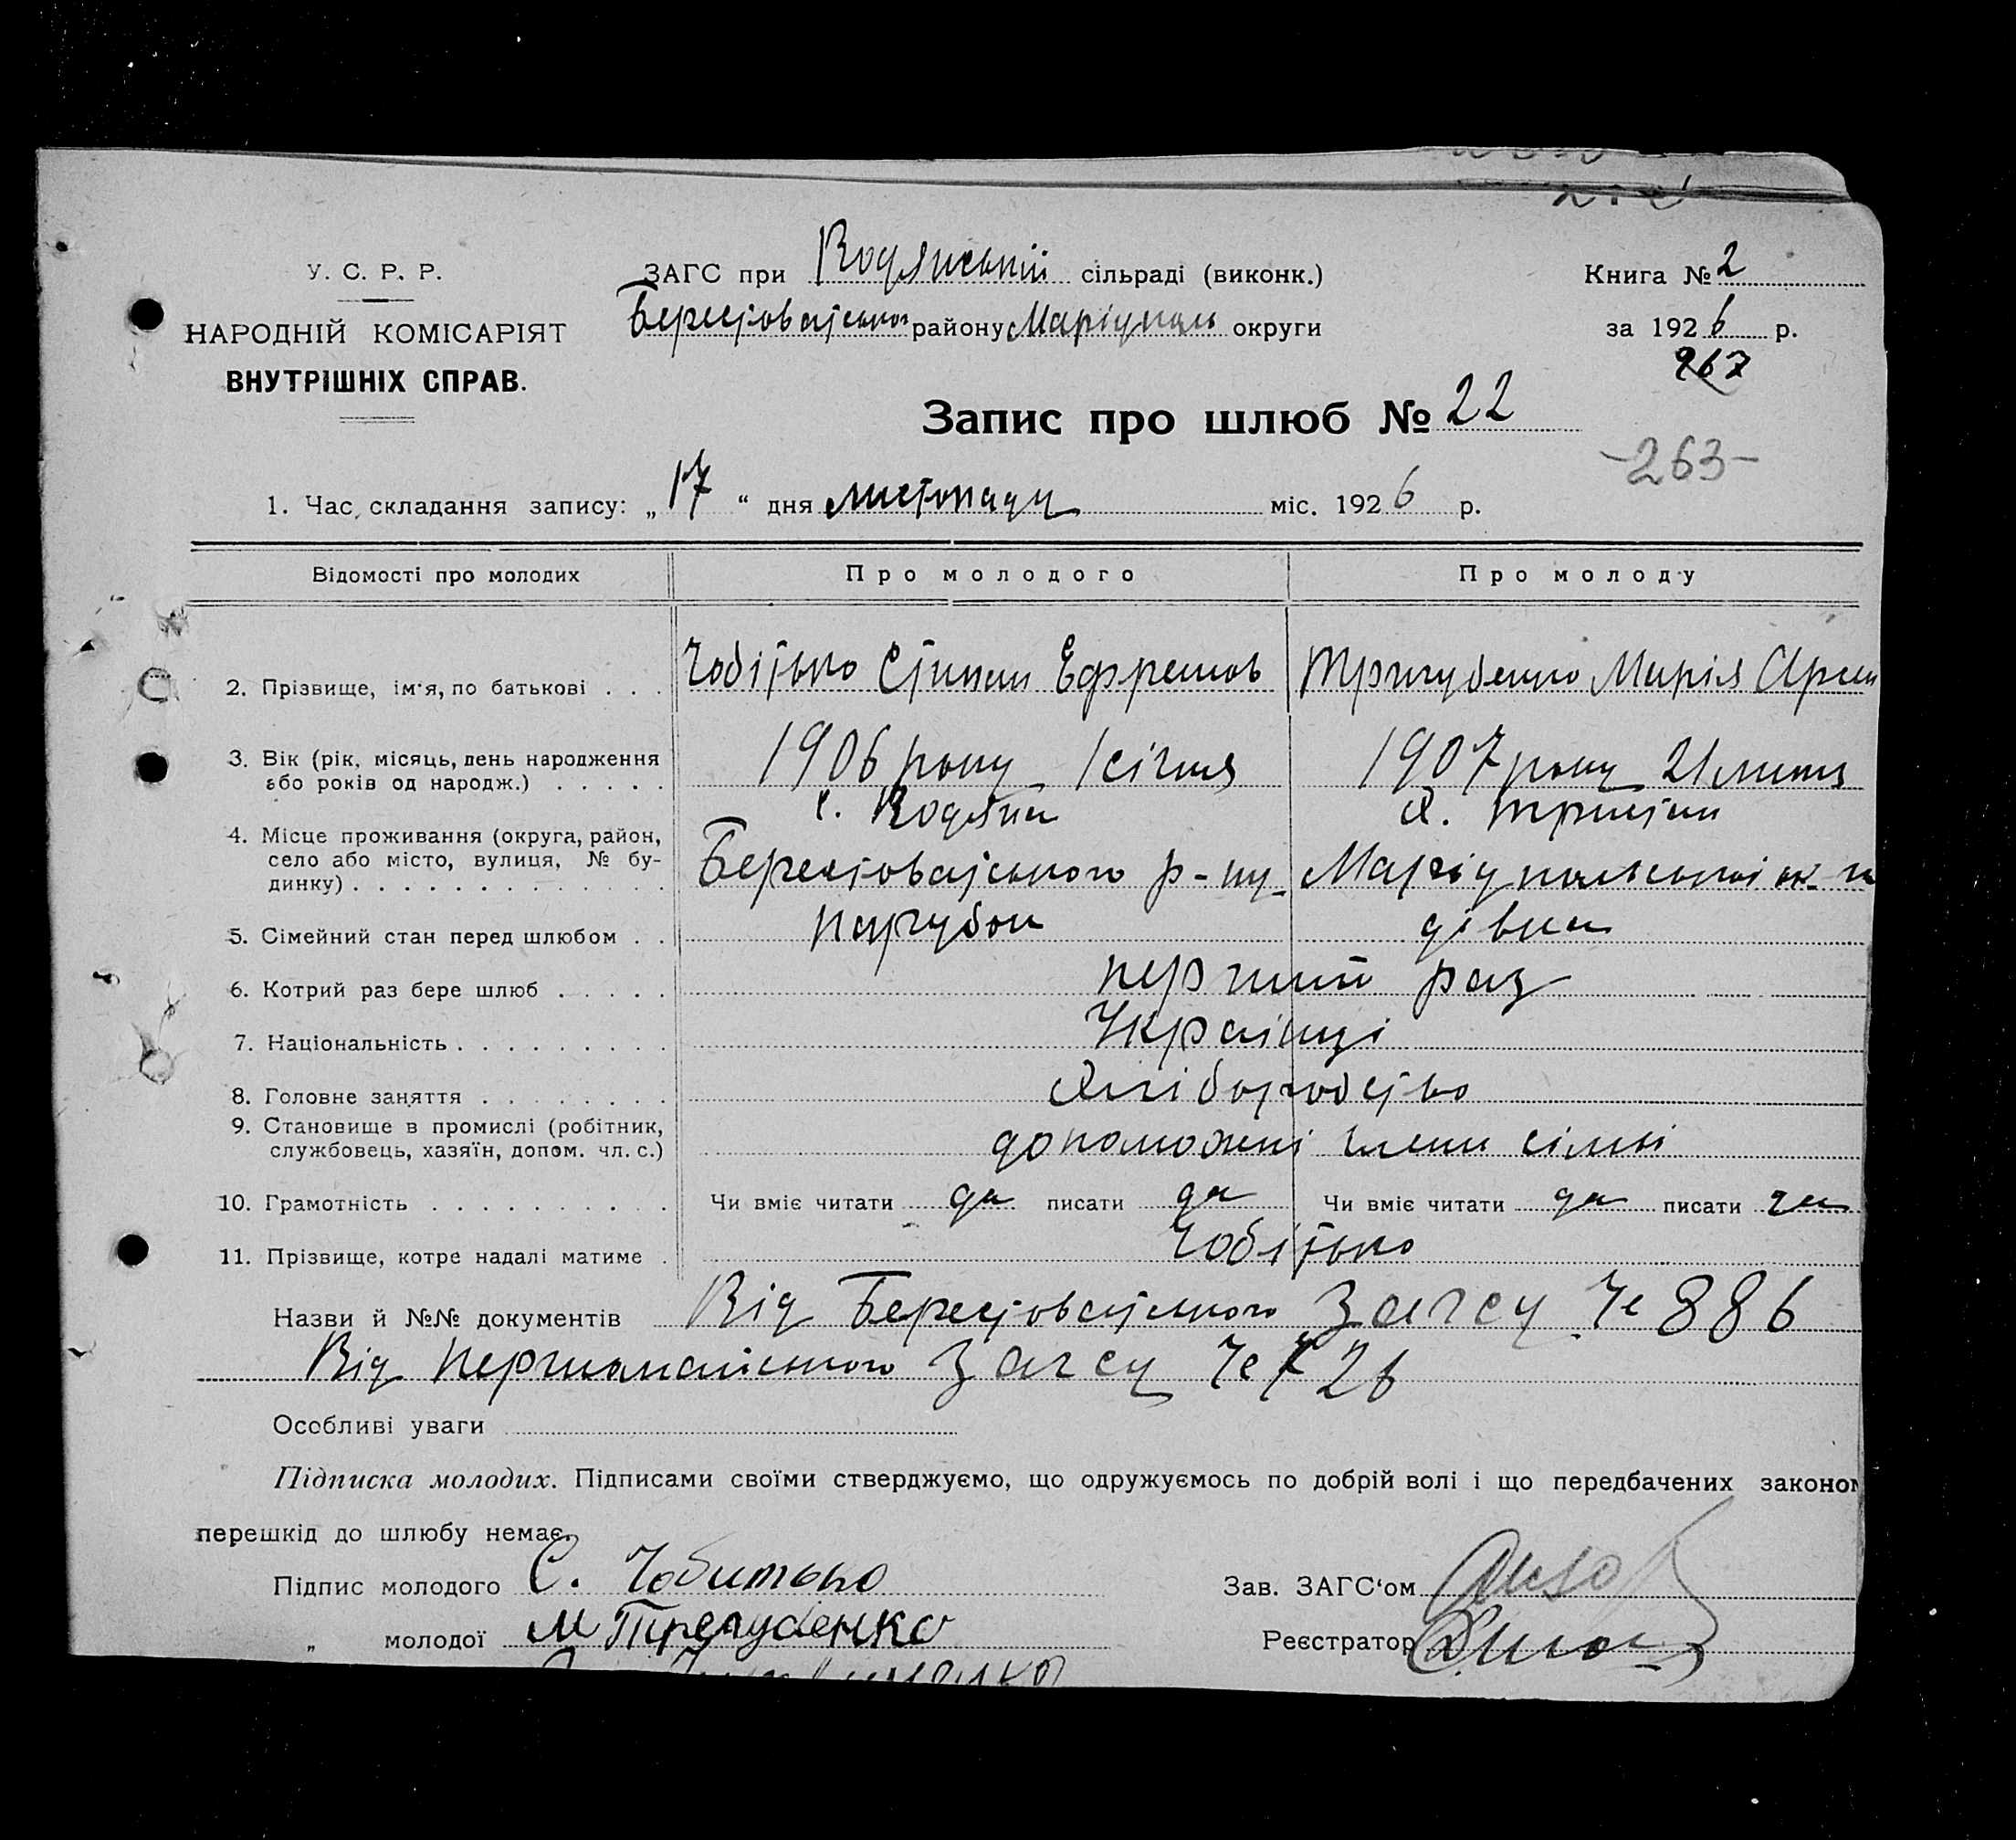 У. С. Р. Р.
НАРОДНІЙ КОМІСАРІЯТ
ВНУТРІШНІХ СПРАВ.
ЗАГС при Водянській сільраді (виконк.)
Берестоватського району Маріупіль округи
Книга № 2
за 1926 р.
267
Запис про шлюб № 22
-263-
1. Час складання запису: „17“ дня листопаду міс. 1926 р.
Відомості про молодих Про молодого Про молоду
2. Прізвище, ім'я, по батькові . . . Чобітько Степан Ефремов Тригубенко Марія
3. Вік (рік, місяць, день народження або років од народж.) . . . . . 1906 року 1 січня 1907 року 21 липня
4. Місце проживання (округа, район, село або місто, вулиця, № будинку) . . . . . . . . . . . . с. Водяна Берестоватського р-ну Маріупольської ок-ги
5. Сімейний стан перед шлюбом . . парубок дівка
6. Котрий раз бере шлюб . . . . . перший раз
7. Національність . . . . . . . . . Українці
8. Головне заняття . . . . . . . . Хліборобство
9. Становище в промислі (робітник, службовець, хазяїн, допом. чл. с.) допоможні члени сімьі
10. Грамотність . . . . . . . . . . Чи вміє читати да писати да Чи вміє читати да писати да
11. Прізвище, котре надалі матиме . Чобітько
Назви й №№ документів Від Берестоватського Загсу № 886
Від Першомайського Загсу № 726
Особливі уваги
Підписка молодих. Підписами своїми стверджуємо, що одружуємось по добрій волі і що передбачених законом
перешкід до шлюбу немає.
Підпис молодого С. Чобитько Зав. ЗАГС‘ом
„ молодої М Трегубенко Реєстратор